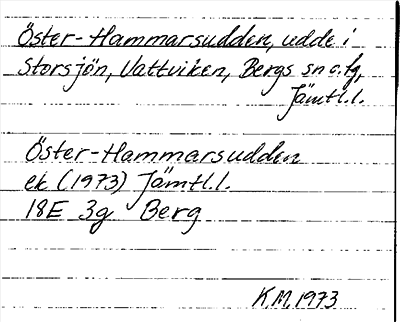 Öster-Hammarsudden, udde i
Storsjön, Vattviken, Bergs sn o. fg,
Jämtl.l.
Öster-Hammarsudden
ek (1973) Jämtl.l.
18E 3g Berg
KM, 1973